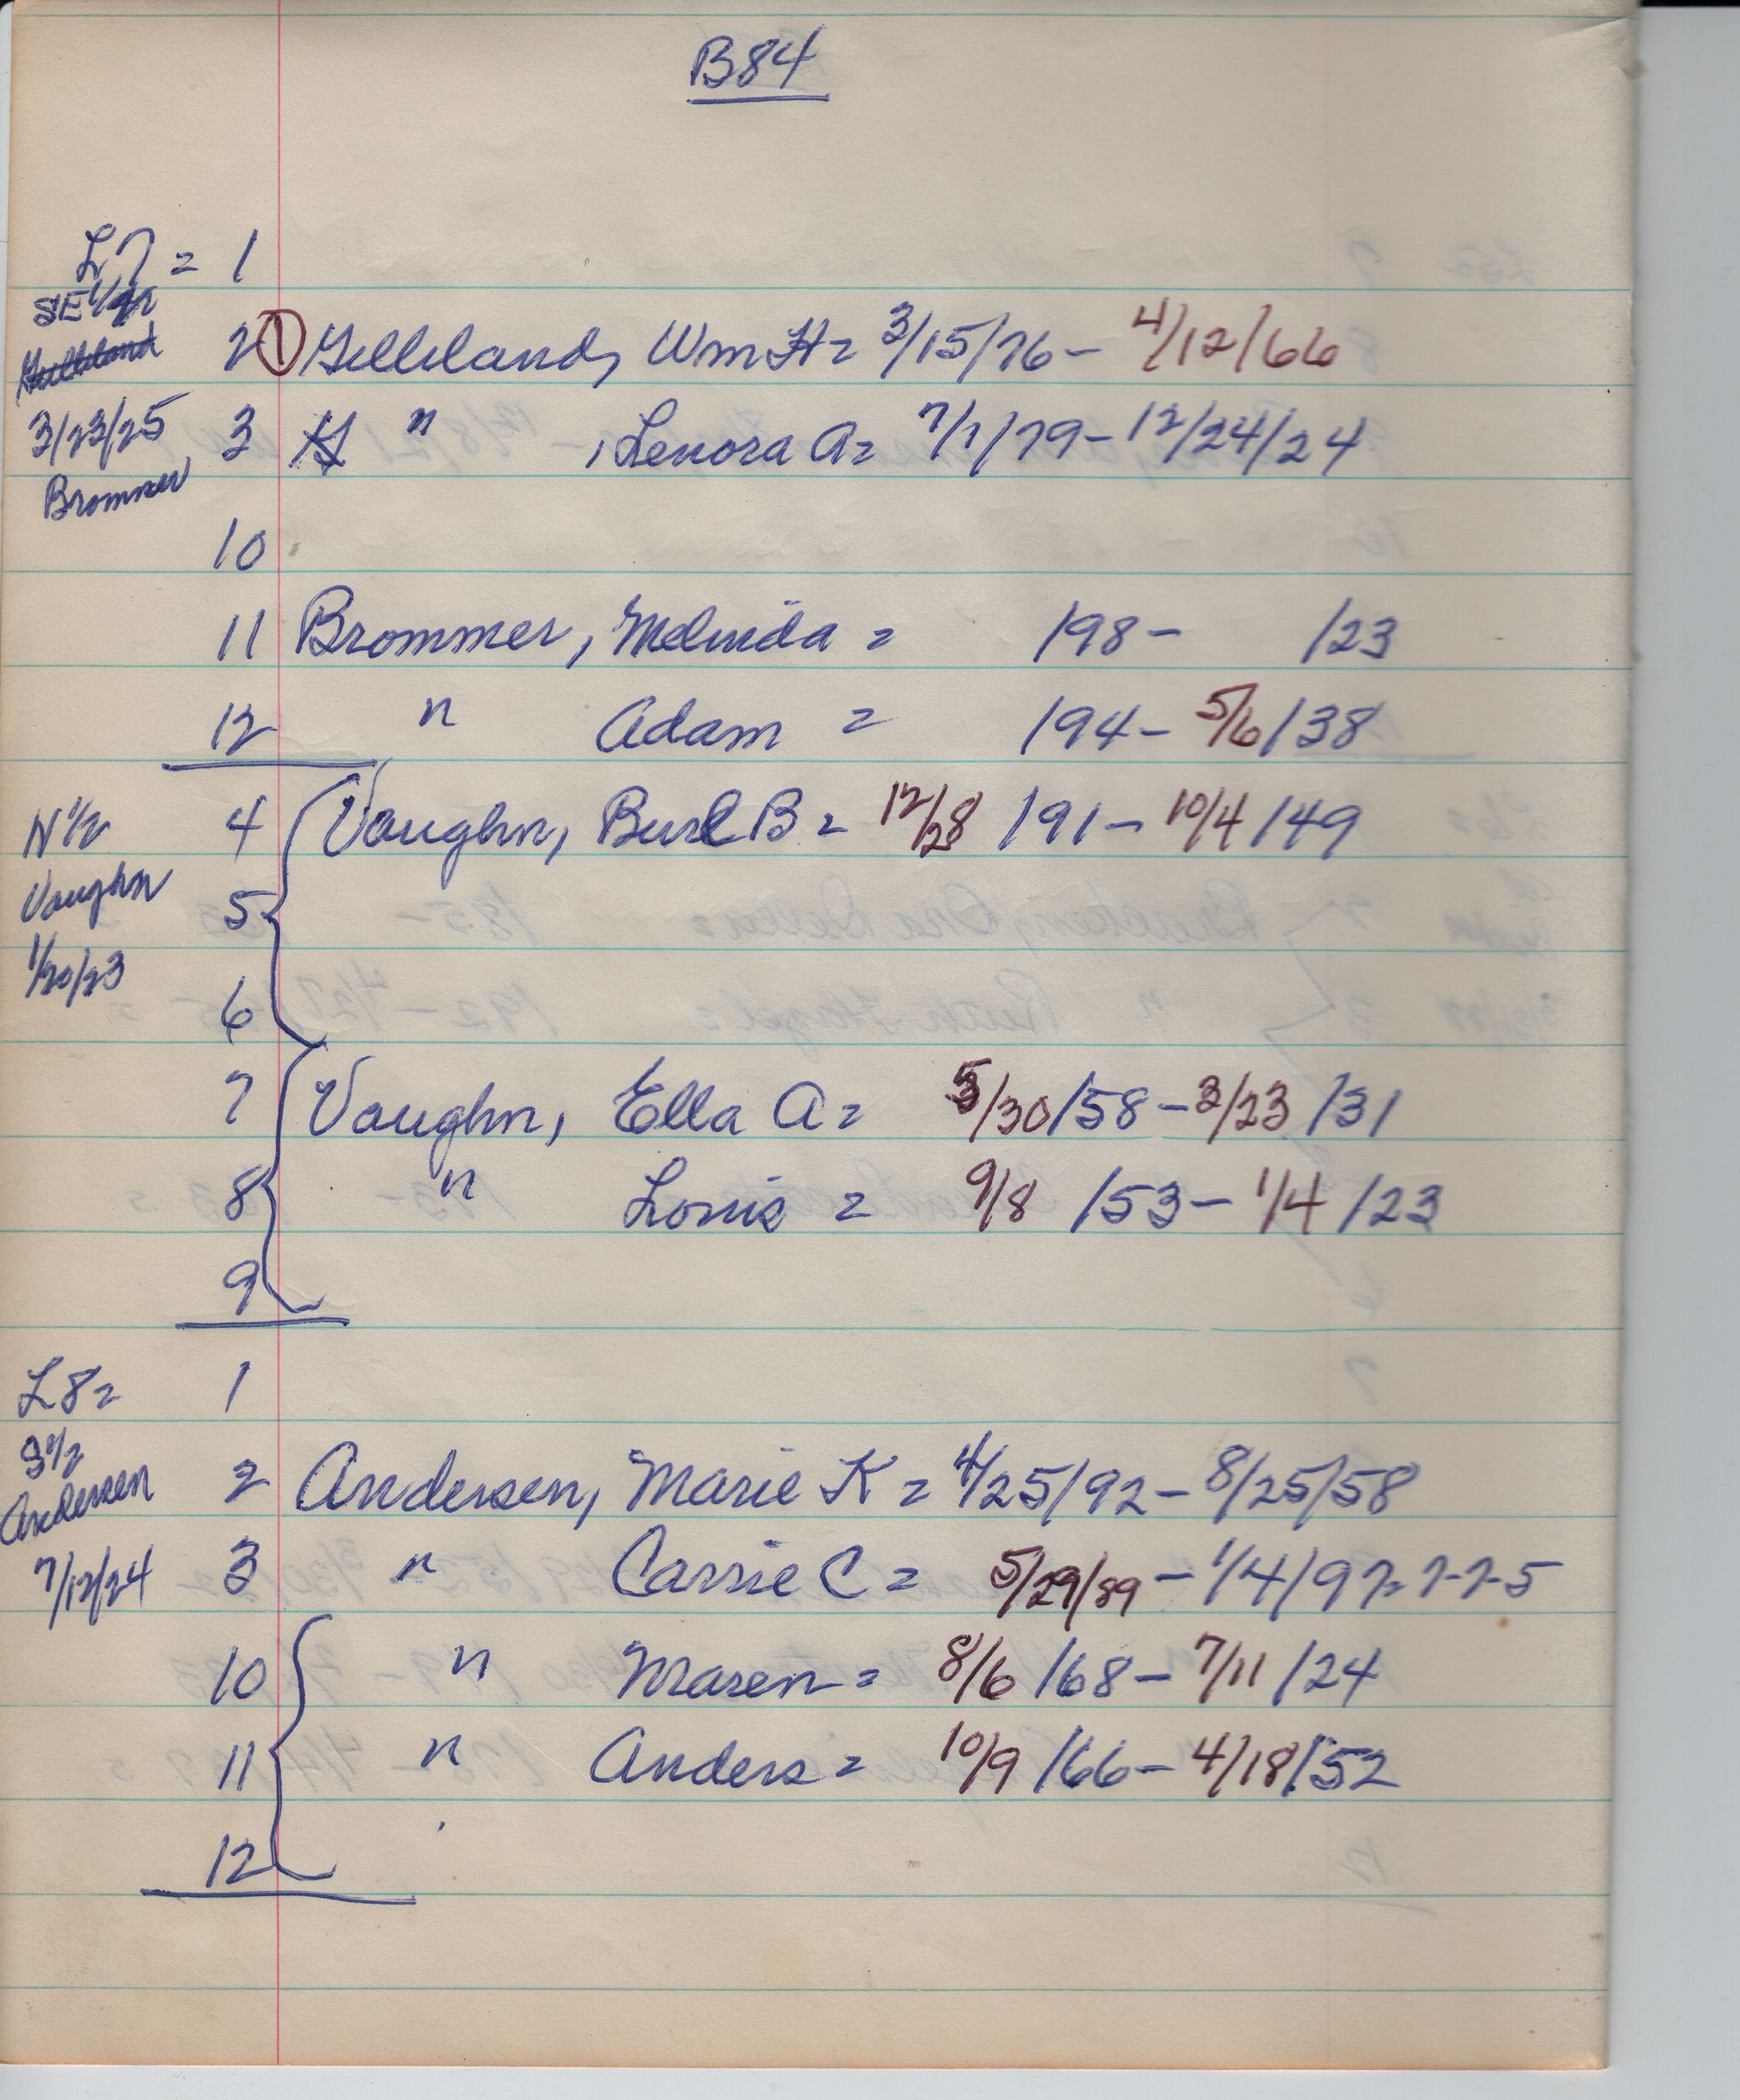 B84
L7 = 1
SE 1/4
2 ① Gilleland, Wm H = 3/15/76 - 4/12/66
3/23/25 3 " , Lenora A = 7/1/79 - 12/24/24
Brommer
10
11 Brommer, Melinda = /98 - /23
12 " Adam = /94 - 5/6/38
N 1/2 4 Vaughn, Burl B = 12/28 /91 - 10/4/49
Vaughn 5
1/20/23 6
7 Vaughn, Ella A = 5/30/58 - 3/23/31
8 " Louis = 9/8 /53 - 1/4 /23
9
L8 = 1
S 1/2
Andersen 2 Andersen, Marie K = 4/25/92 - 8/25/58
7/12/24 3 " Carrie C = 5/29/89 - 1/4/97 = 7-7-5
10 " Maren = 8/6 /68 - 7/11 /24
11 " Anders = 10/9 /66 - 4/18/52
12